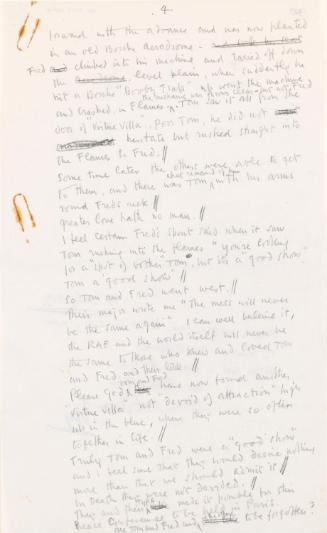 4
forward with the advance and was now planted
in an old Bosche Aerodrome.
Fred climbed into his machine, and taxied off down
the level plain, when suddenly he
hit a Bosche "Booby Trap" up went the machine
and crashed, in Flames. Tom saw it all from the
door of "Virtue Villa". Poor Tom, he did not
hesitate but rushed straight into
the Flames to Fred. //
Some time later the others were able to get
to them, and there was Tom with his arms
round Fred's neck //
greater love hath no man. //
I feel certain Fred's spirit said when it saw
Tom rushing into the flames "you're looking
for a spot of bother" Tom, but it's a "good show"
Tom a "good show" //
So Tom and Fred went west. //
Their major wrote me "The mess will never
be the same again". I can well believe it,
the RAF and the world itself will never be
the same to those who knew and loved Tom
and Fred, and their
Please God, Tom and Fred have now found another
Virtue Villa" not "devoid of attraction" high
up in the blue, where they were so often
together in life. //
Truly Tom and Fred were a "good show"
and I feel sure that they would desire nothing
more than that we should admit it //
In death they were not divided. //
They and their made it possible for this
Peace Conference to be held in Paris.
Are Tom and Fred to be forgotten?